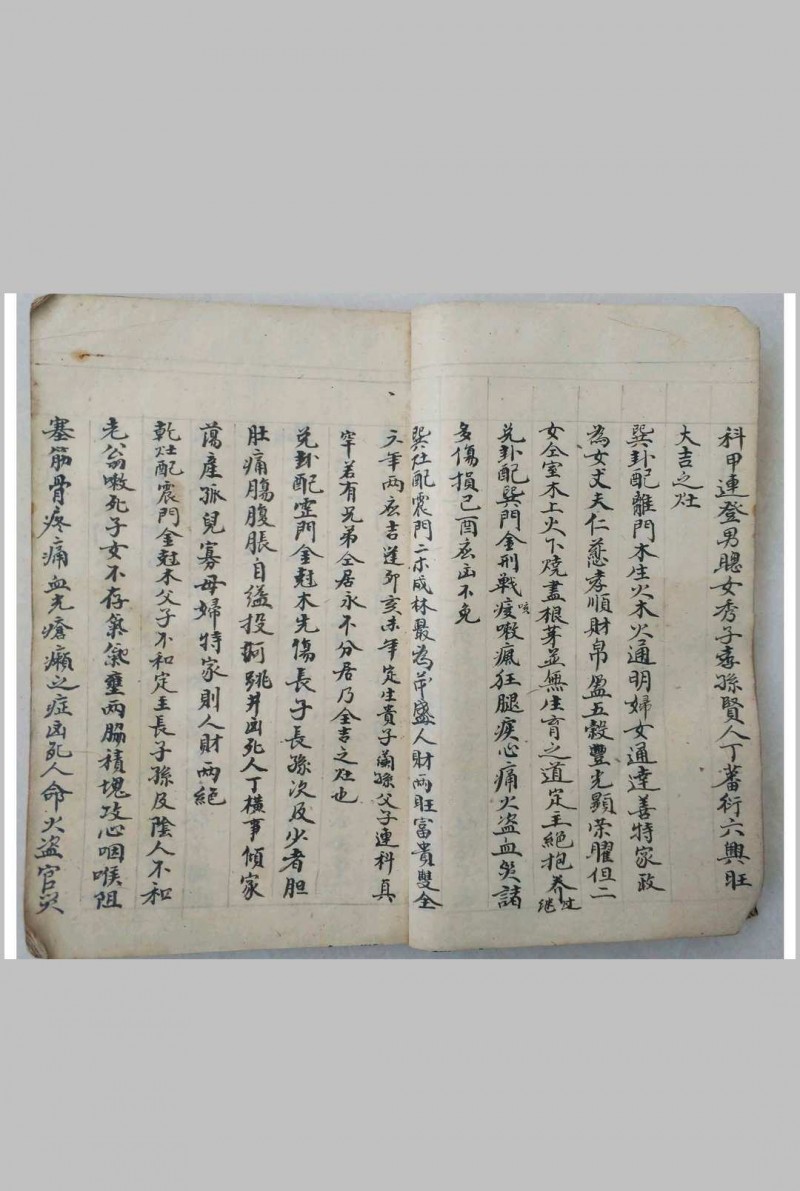 科甲連登男聰女秀子孝孫賢人丁蕃衍六興旺
大吉之灶
巽卦配離門木生火木火通明婦女通達善持家政
為女丈夫仁慈孝順財帛盈五穀豐光顯榮耀但二
女仝室木上火下燒盡根芽並無生育之道定主絕抱養
兌卦配巽門金刑戰痰咳嗽瘋狂腿疾心痛火盜血災諸
多傷損已酉居凶不免
巽灶配震門二木成林最為茂盛人財兩旺富貴雙全
六年兩居吉逢卯亥未年定生貴子蘭孫父子連科真
罕若有兄弟仝居永不分居乃全吉之灶也
兌卦配震門金尅木先傷長子長孫次及少者胆
肚痛腸腹脹自縊投河跳井凶死人丁横事傾家
蕩產孤兒寡母婦持家則人財兩絕
乾灶配震門金尅木父子不和定主長子孫及陰人不和
老翁嗽死子女不存氣壅兩脇積塊攻心咽喉阻
塞筋骨疼痛血光瘡癩之症凶死人命火盜官災